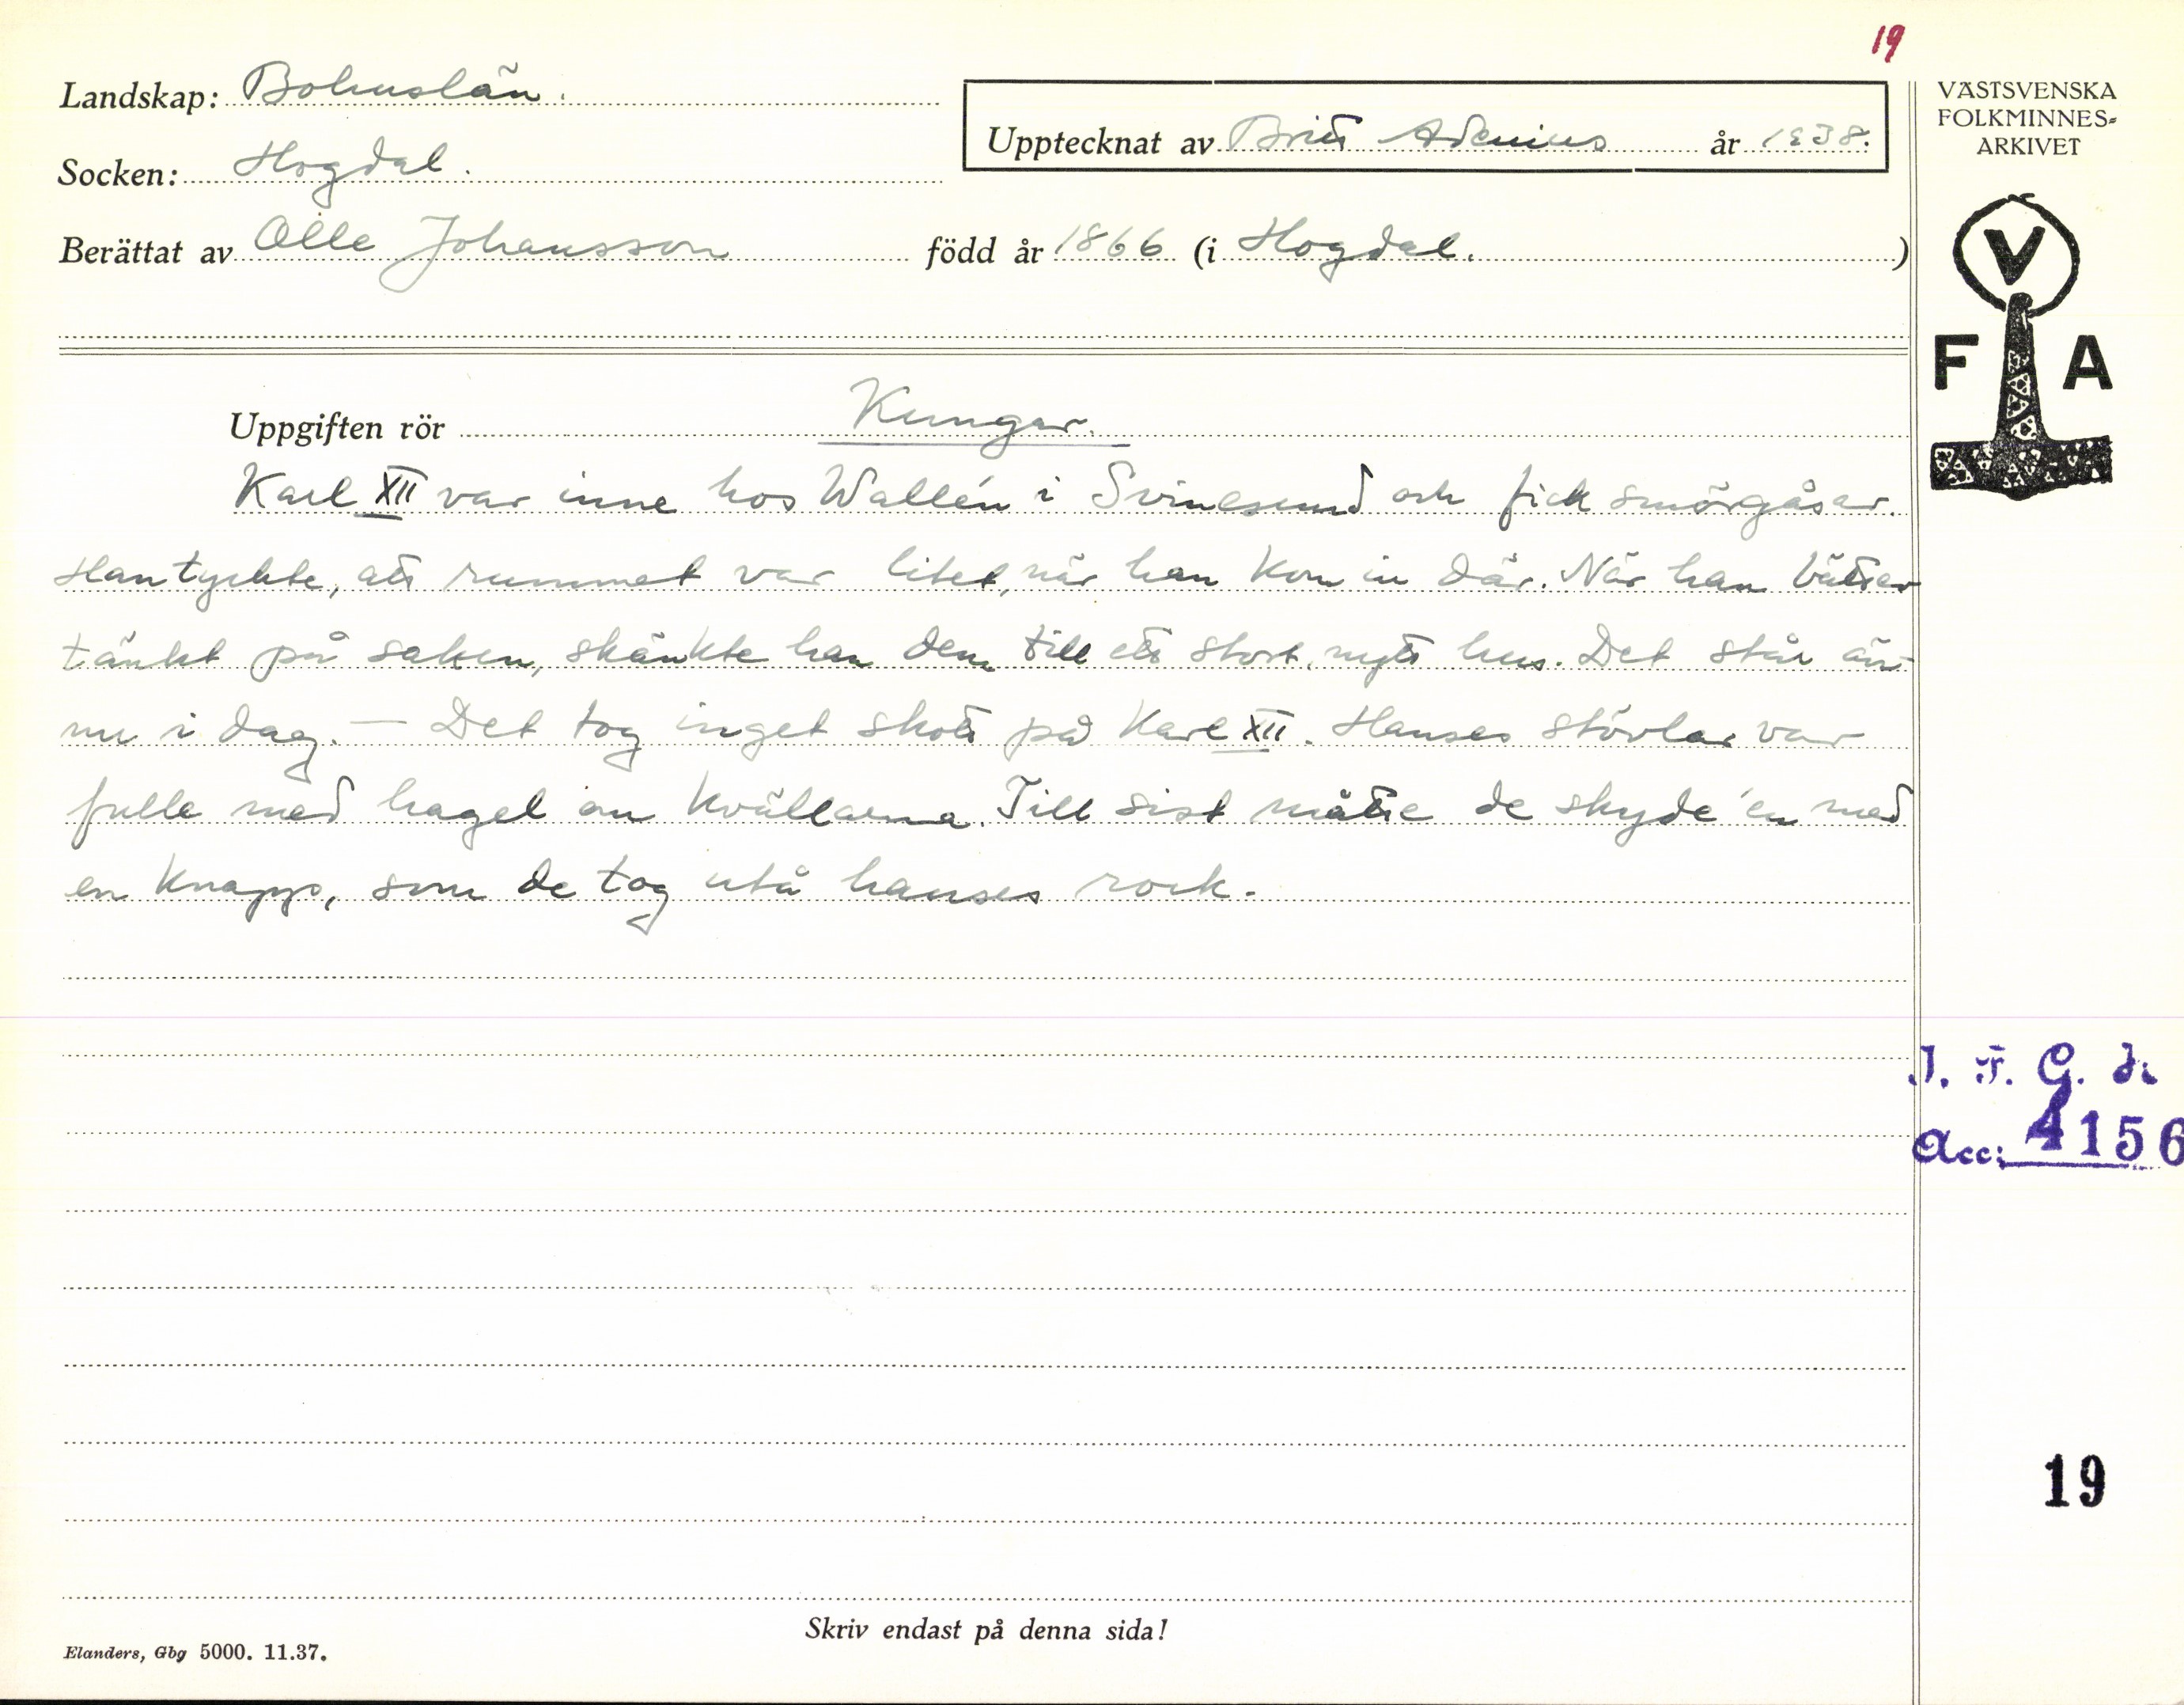 19
Landskap: Bohuslän.
Upptecknat av Britt Adenius år 1938.
Socken: Hogdal.
Berättat av Olle Johansson född år 1866 (i Hogdal.)
VÄSTSVENSKA
FOLKMINNES-
ARKIVET
V
F A
Uppgiften rör Kungar.
Karl XII var inne hos Wallén i Svinesund och fick smörgåsar.
Han tyckte, att rummet var litet, när han kom in där. När han bätter
tänkt på saken, skänkte han dem till ett stort, nytt hus. Det står än-
nu i dag. — Det tog inget skott på Karl XII. Hanses stövlar var
fulle med hagel om kvällarna. Till sist måtte de skyde 'en med
en knapp, som de tog utå hanses rock.
I. F. G. s
Acc: 4156
19
Skriv endast på denna sida!
Elanders, Gbg 5000. 11.37.